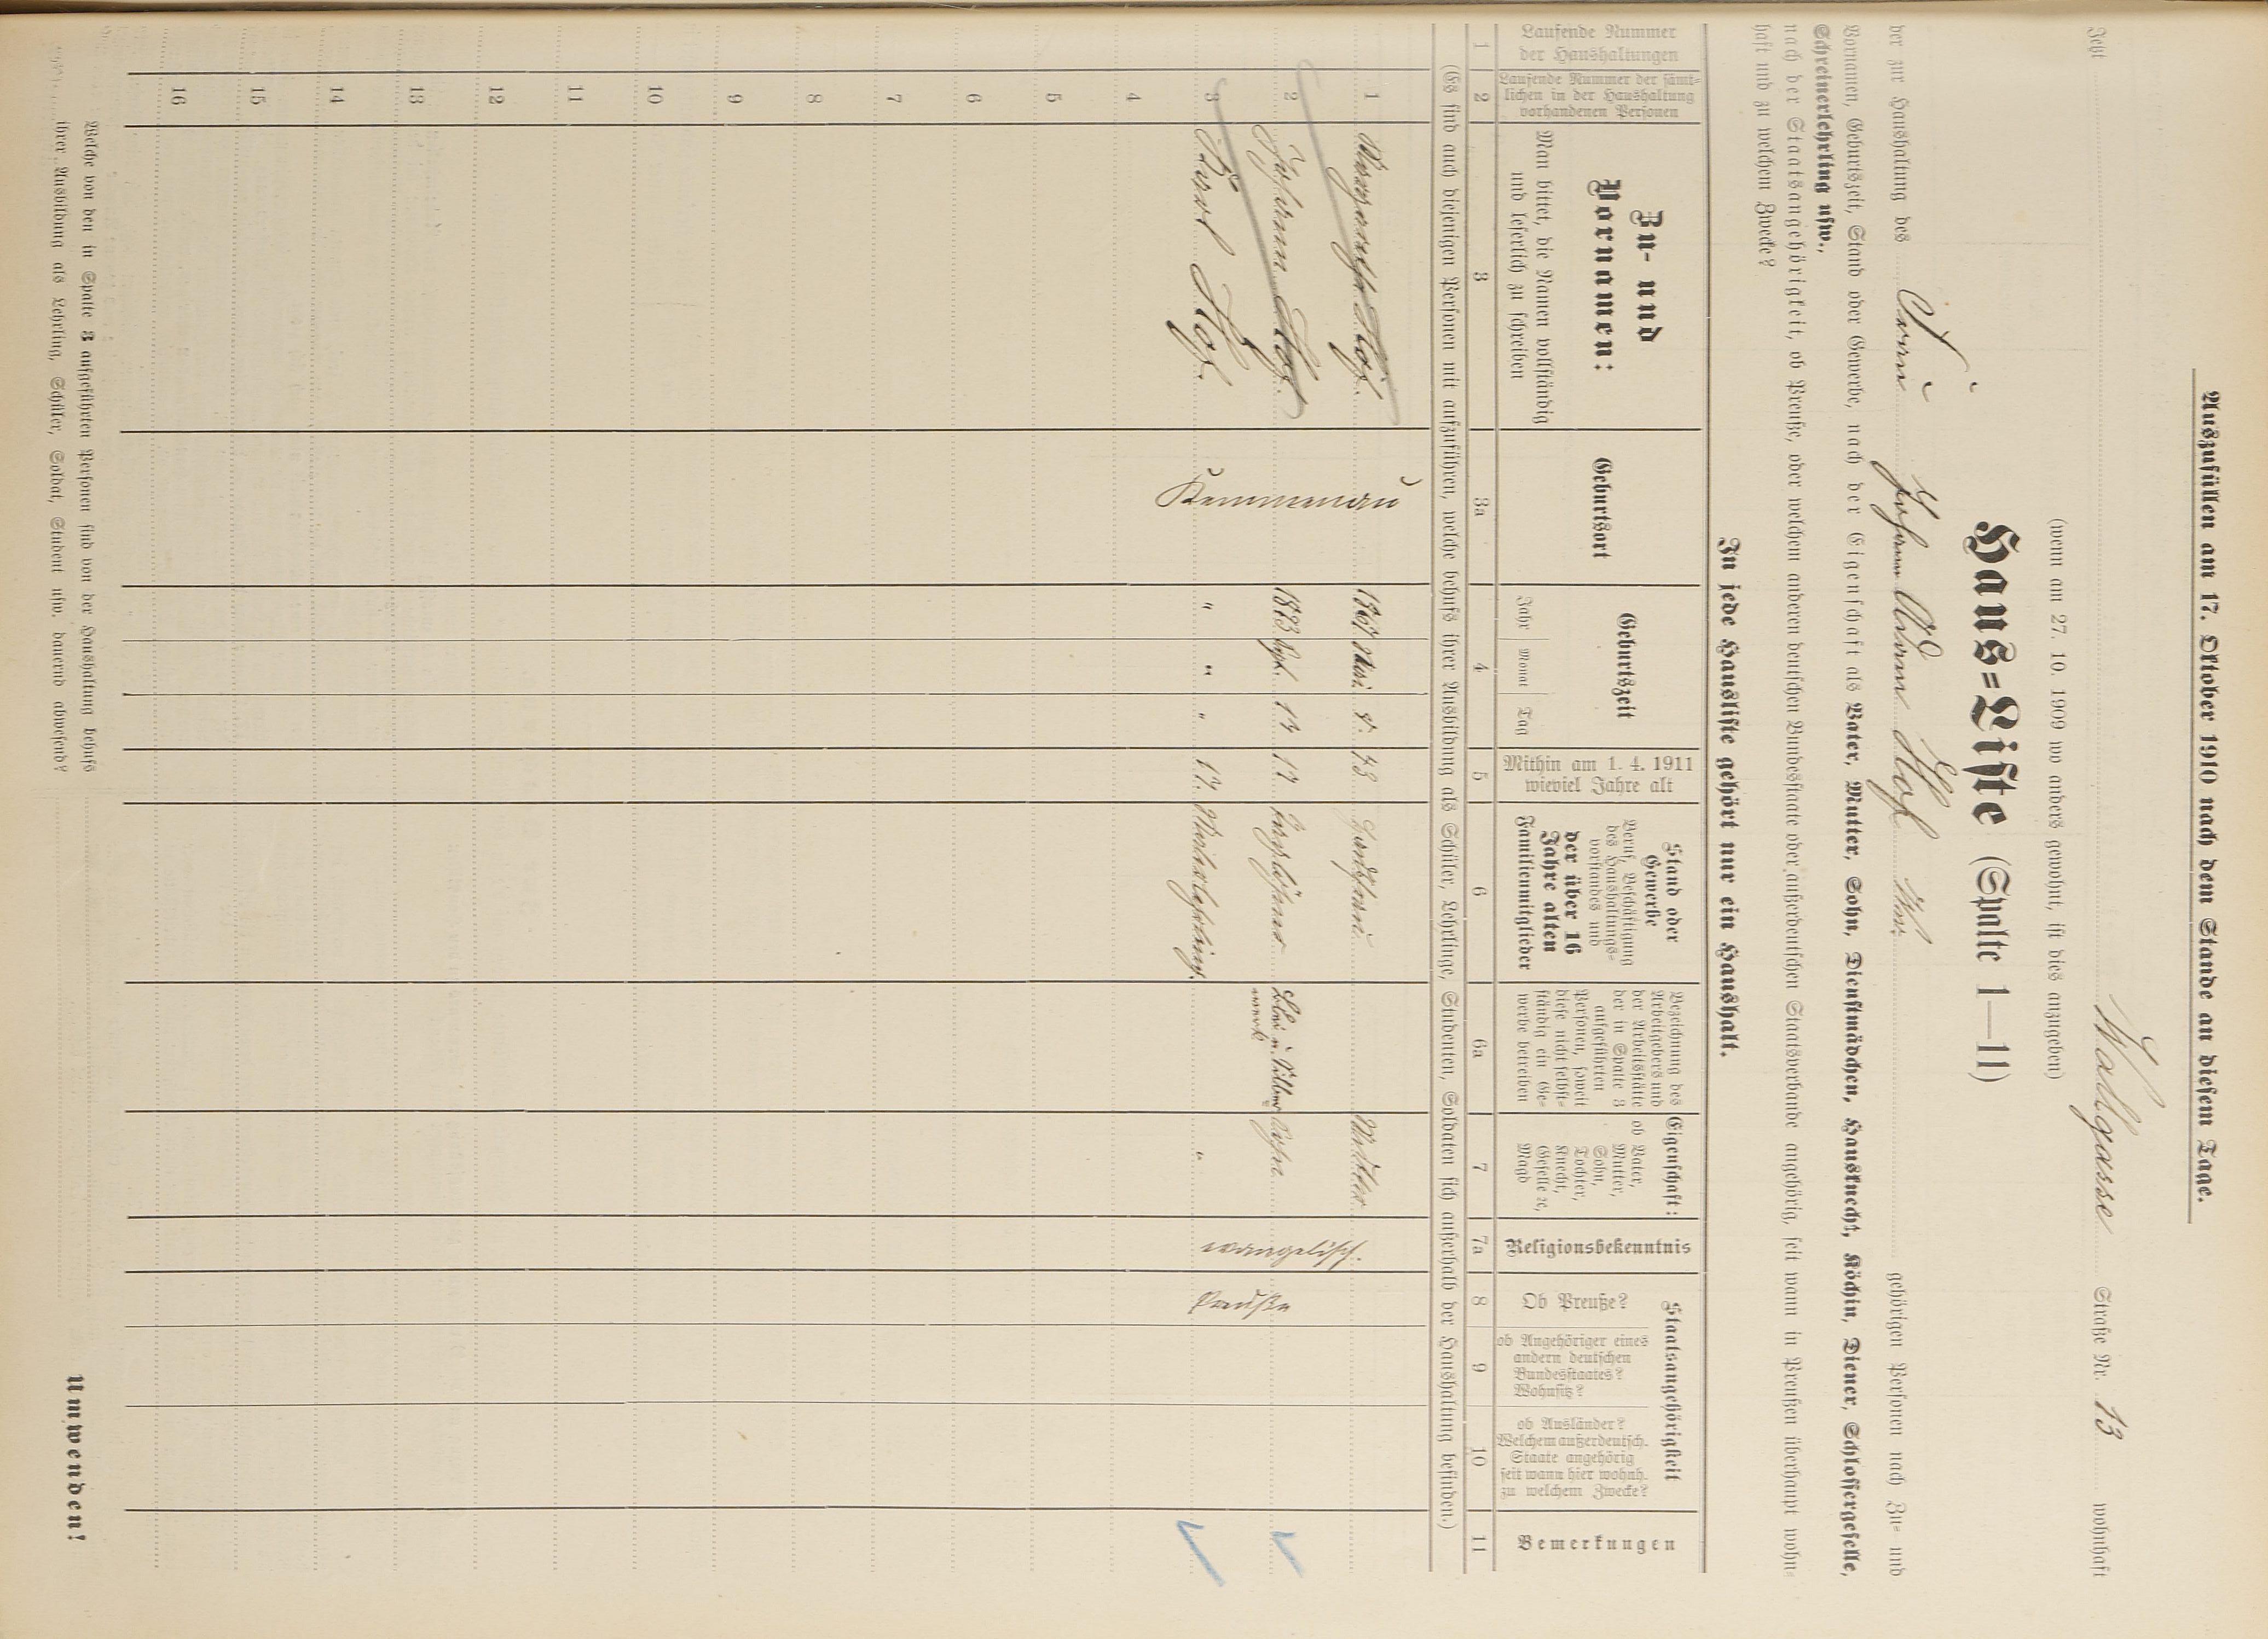 Auszufüllen am 17. Oktober 1910 nach dem Stande an diesem Tage.
Jetzt Walsgasse Straße Nr. 13 wohnhaft
(wenn am 27. 10. 1909 wo anders gewohnt, ist dies anzugeben)
Haus=Liste (Spalte 1—11)
der zur Haushaltung des Johann Adam Hof Ww. gehörigen Personen nach Zu= und
Vornamen, Geburtszeit, Stand oder Gewerbe, nach der Eigenschaft als Vater, Mutter, Sohn, Dienstmädchen, Hausknecht, Köchin, Diener, Schlossergeselle,
Schreinerlehrling usw.,
nach der Staatsangehörigkeit, ob Preuße, oder welchem anderen deutschen Bundesstaate oder außerdeutschen Staatsverbande angehörig, seit wann in Preußen überhaupt wohn=
haft und zu welchem Zwecke?
In jede Hausliste gehört nur ein Haushalt.
Laufende Nummer
der Haushaltungen
Laufende Nummer der sämt=
lichen in der Haushaltung
vorhandenen Personen
Zu- und
Vornamen:
Man bittet, die Namen vollständig
und leserlich zu schreiben
Geburtsort
Geburtszeit
Jahr Monat Tag
Mithin am 1. 4. 1911
wieviel Jahre alt
Stand oder
Gewerbe
Beruf, Beschäftigung
des Haushaltungs=
vorstandes und
der über 16
Jahre alten
Familienmitglieder
Bezeichnung des
Arbeitgebers und
der Arbeitsstätte
der in Spalte 3
aufgeführten
Personen, soweit
diese nicht selbst=
ständig ein Ge=
werbe betreiben
Eigenschaft:
ob Vater,
Mutter,
Sohn,
Tochter,
Knecht,
Geselle 2c,
Magd
Religionsbekenntnis
Staatsangehörigkeit
Ob Preuße?
ob Angehöriger eines
andern deutschen
Bundesstaates?
Wohnsitz?
ob Ausländer?
Welchem außerdeutsch.
Staate angehörig
seit wann hier wohnh.
zu welchem Zwecke?
Bemerkungen
1 2 3 3a 4 5 6 6a 7 7a 8 9 10 11
(Es sind auch diejenigen Personen mit aufzuführen, welche behufs ihrer Ausbildung als Schüler, Lehrlinge, Studenten, Soldaten sich außerhalb der Haushaltung befinden.)
1 Margarethe Hof. Kemmenau 1867 8. 43 Hausfrau. Mutter evangelisch.
2 Johann Hof. 1893 Sept. 14 17 Taglöhner Blei u. Silber Sohn Preuße
werk
3 Karl Hof. " " " 17. "
4
5
6
7
8
9
10
11
12
13
14
15
16
Welche von den in Spalte 3 aufgeführten Personen sind von der Haushaltung behufs
ihrer Ausbildung als Lehrling, Schüler, Soldat, Student usw. dauernd abwesend?
Umwenden!